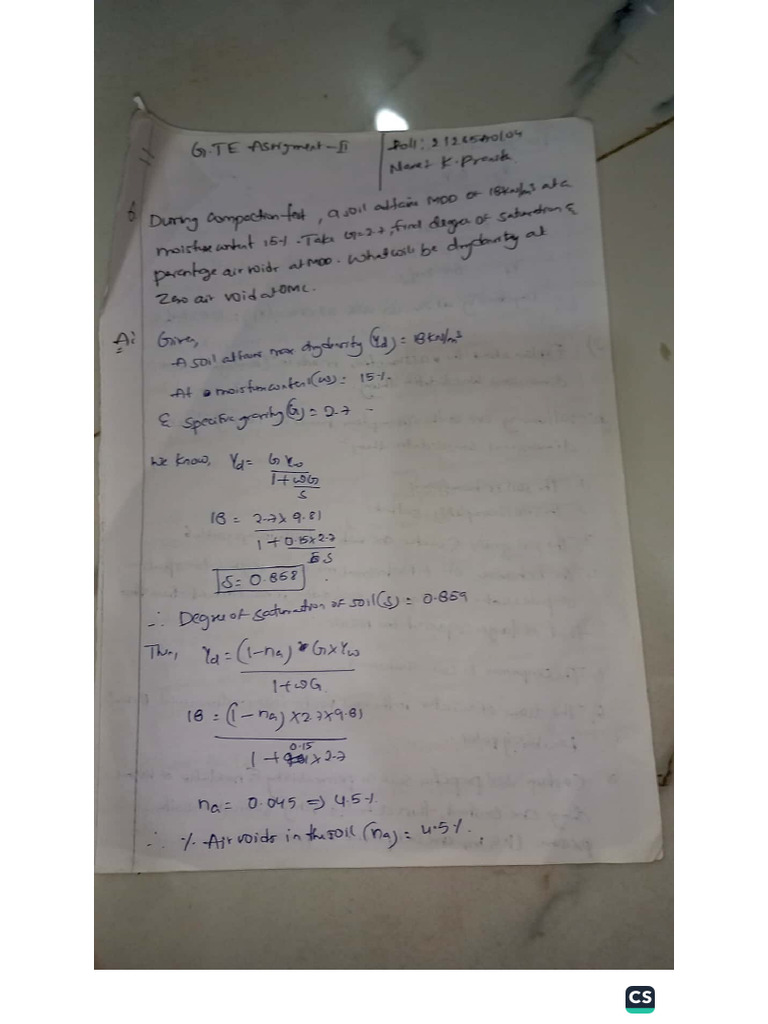 G.TE Assigment-II
Roll: 21265A0104
Name: K.
6 During compaction test, a soil attains MDD of 18kN/m³ at a
moisture content 15%. Take G=2.7, find degree of saturation &
percentage air voids at MDD. What will be dry density at
Zero air void at OMC.
A: Given,
A soil attains max dry density (γd) = 18kN/m³
At moisture content (ω) = 15%.
& specific gravity (G) = 2.7
We know, γd = Gγω / 1+ωG/S
18 = 2.7×9.81 / 1+0.15×2.7/S
S = 0.858
∴ Degree of saturation of soil(s) = 0.859
Then, γd = (1-na) G×γω / 1+ωG
18 = (1-na)×2.7×9.81 / 1+0.15×2.7
na = 0.045 => 4.5%
∴ % Air voids in the soil (na) = 4.5%.
CS